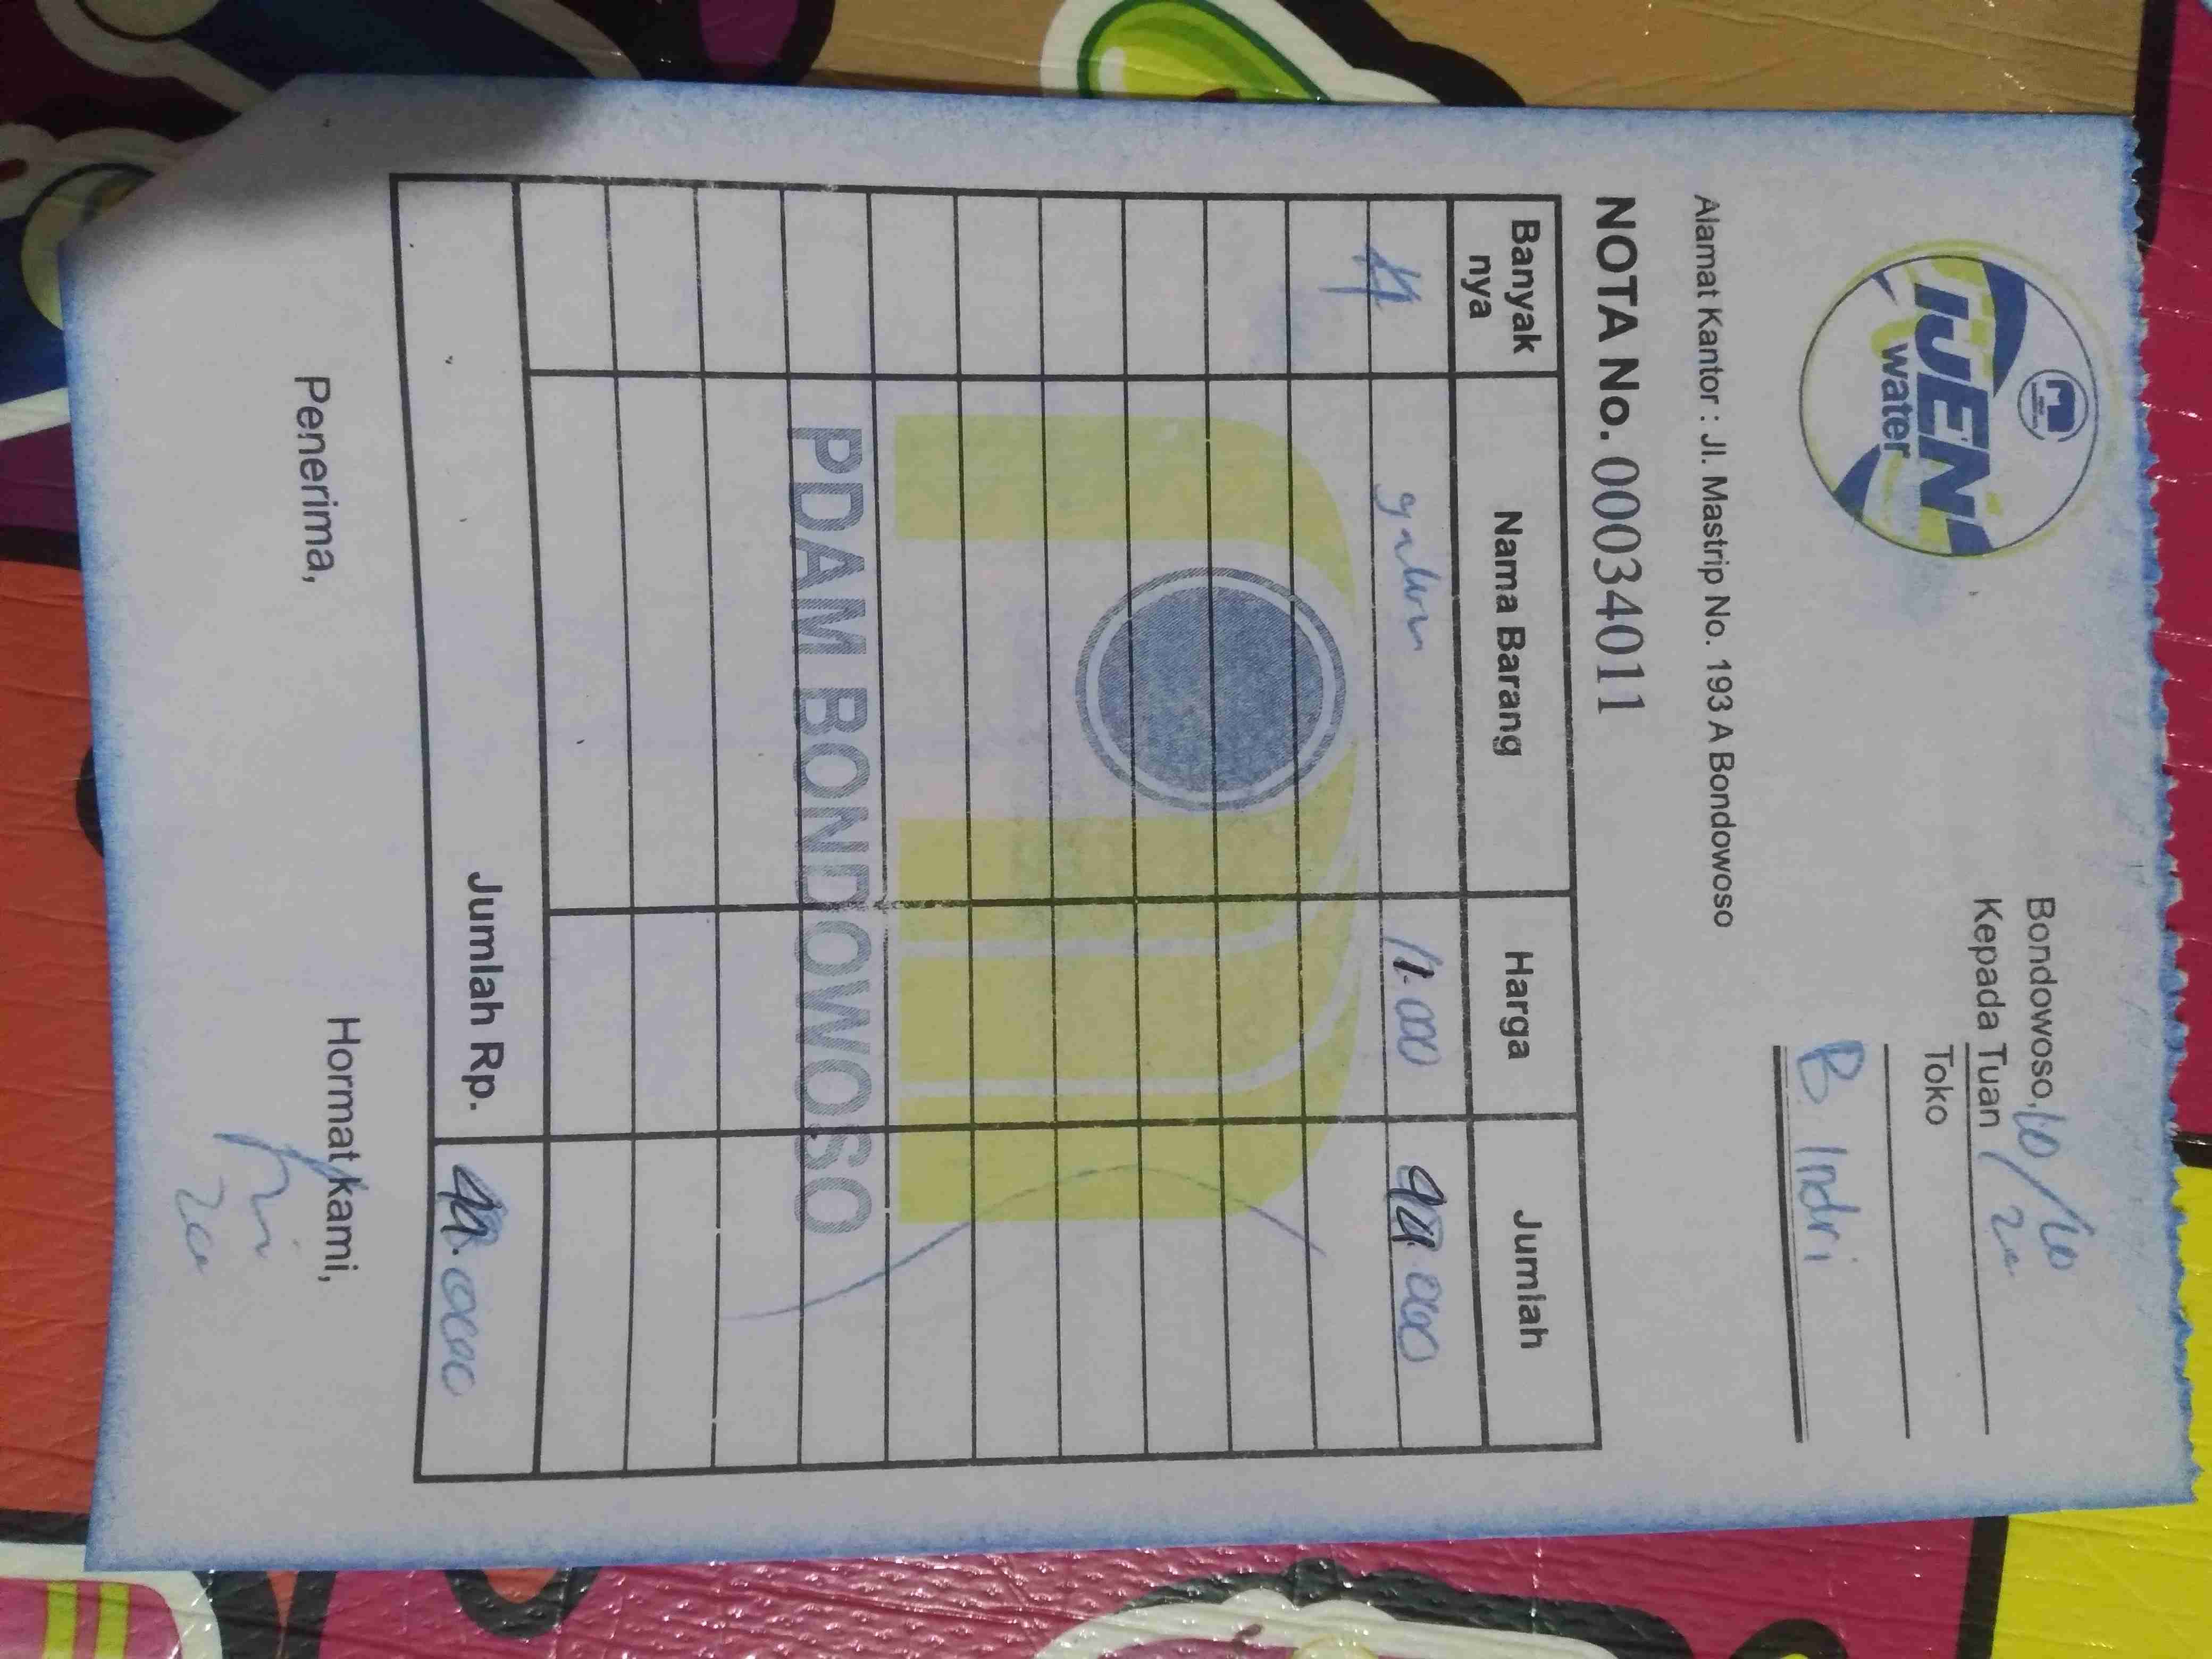 IJEN
water
Bondowoso, 10/10
Kepada Tuan
Toko
B Indri
Alamat Kantor : Jl. Mastrip No. 193 A Bondowoso
NOTA No. 00034011
Banyak
nya
Nama Barang
Harga
Jumlah
4 galon 11.000 44.000
PDAM BONDOWOSO
Jumlah Rp. 44.0000
Penerima,
Hormat kami,